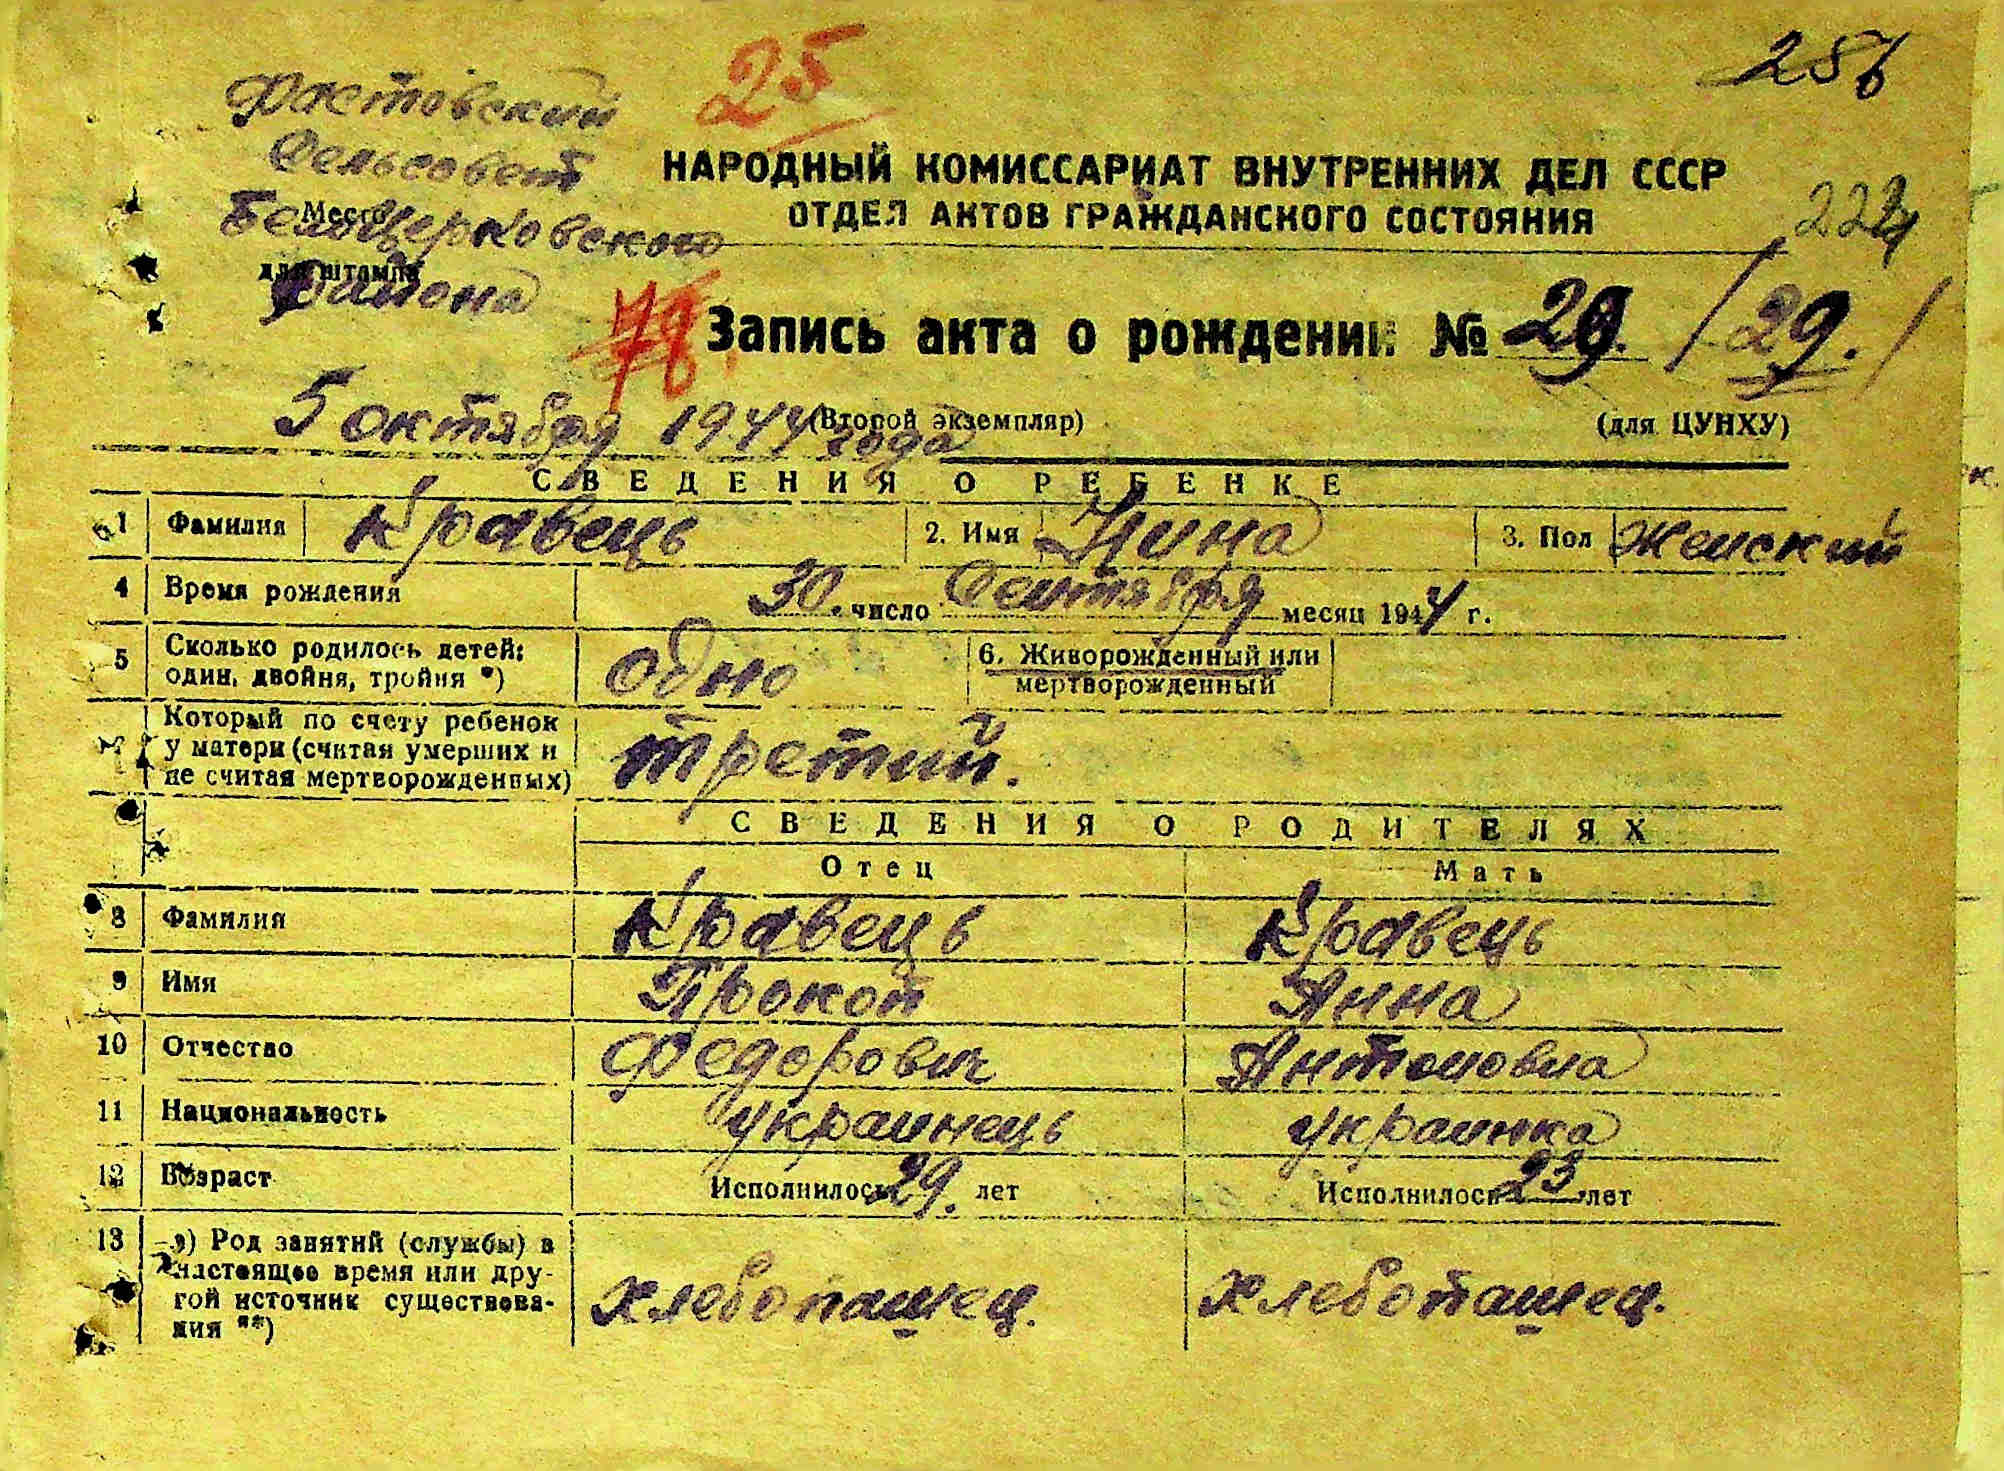 25
256
Фастовский
Сельсовет
НАРОДНЫЙ КОМИССАРИАТ ВНУТРЕННИХ ДЕЛ СССР
Место
Белоцерковского
ОТДЕЛ АКТОВ ГРАЖДАНСКОГО СОСТОЯНИЯ
для штампа
района
78. Запись акта о рождении № 29. / 29. /
5 октября 1944 года (Второй экземпляр) (для ЦУНХУ)
СВЕДЕНИЯ О РЕБЕНКЕ
1 Фамилия Кравець 2. Имя Нина 3. Пол Женский
4 Время рождения 30. число Сентября месяц 1944 г.
5 Сколько родилось детей: один, двойня, тройня *) одно 6. Живорожденный или мертворожденный
Который по счету ребенок
у матери (считая умерших и
не считая мертворожденных) третий.
СВЕДЕНИЯ О РОДИТЕЛЯХ
Отец Мать
8 Фамилия Кравець Кравець
9 Имя Прокоп Анна
10 Отчество Федорович Антоновна
11 Национальность украинець украинка
12 Возраст Исполнилось 29. лет Исполнилось 23 лет
13 а) Род занятий (службы) в
настоящее время или дру-
гой источник существова-
ния **) хлебопашец. хлебопашец.